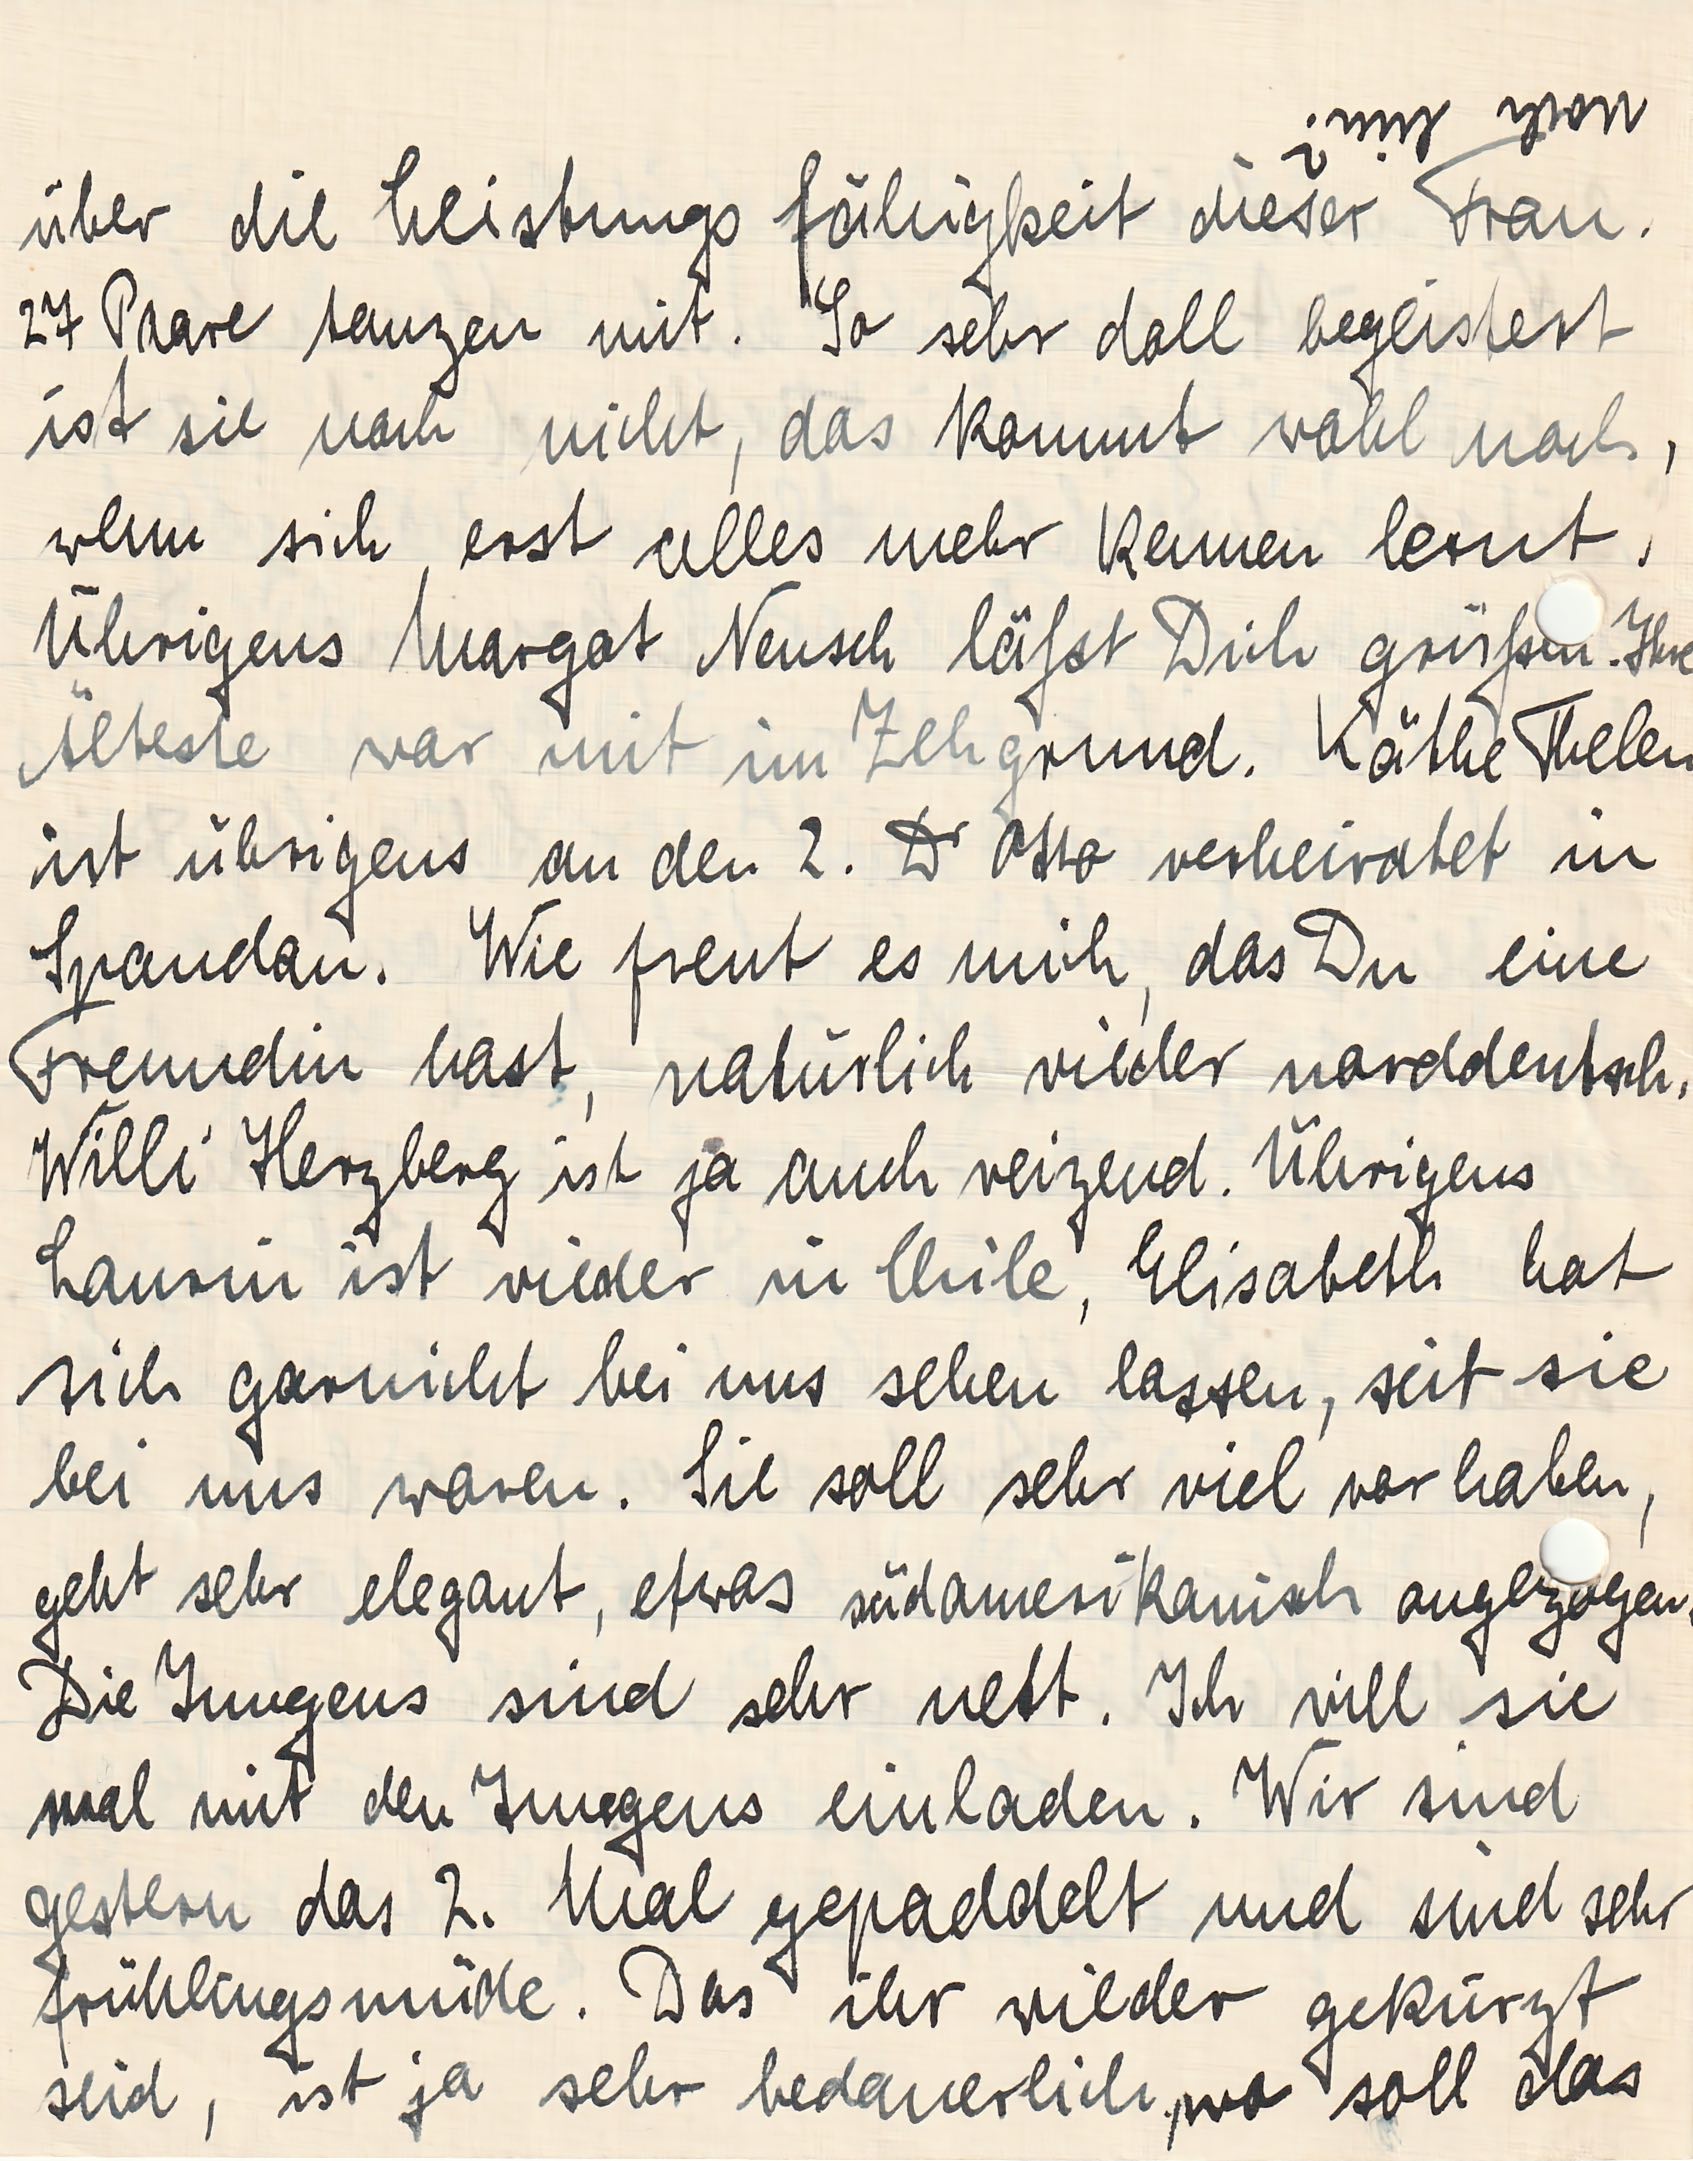 über die Leistungsfähigkeit dieser Frau.
27 Paare tanzen mit. So sehr doll begeistert
ist sie noch nicht, das kommt wohl noch,
wenn sich erst alles mehr kennen lernt.
Übrigens Margot Neusch läßt Dich grüßen. Ihre
Älteste war mit im Zehgrund. Käthe Thelen
ist übrigens an den 2. Dr Otto verheiratet in
Spandau. Wie freut es mich, das Du eine
Freundin hast, natürlich wieder norddeutsch.
Willi Herzberg ist ja auch reizend. Übrigens
Laurin ist wieder in Chile, Elisabeth hat
sich garnicht bei uns sehen lassen, seit sie
bei uns waren. Sie soll sehr viel vor haben,
geht sehr elegant, etwas südamerikanisch angezogen.
Die Jungens sind sehr nett. Ich will sie
mal mit den Jungens einladen. Wir sind
gestern das 2. Mal gepaddelt und sind sehr
frühlingsmüde. Das ihr wieder gekürzt
seid, ist ja sehr bedauerlich, wo soll das
noch hin?